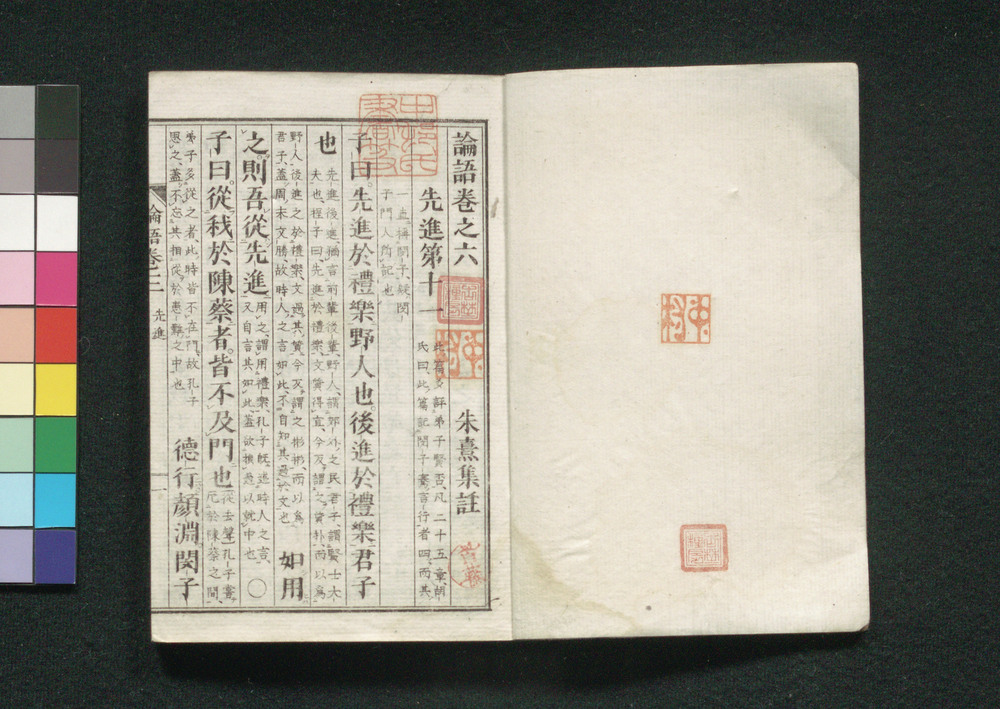 論語卷之六　朱熹集註
先進第十一
此篇多評弟子賢否。凡二十五章。胡
氏曰、此篇記閔子騫言行者四、而其
一直稱閔子、疑閔
子門人所記也
子曰。先進於禮樂野人也。後進於禮樂君子
也
先進後進、猶言前輩後輩。野人、謂郊外之民。君子、謂賢士大
夫也。程子曰、先進於禮樂、文質得宜、今反謂之質朴、而以為
野人。後進之於禮樂、文過其質、今反謂之彬彬、而以為
君子。蓋周末文勝、故時人之言如此、不自知其過於文也
如用
之。則吾從先進
用之、謂用禮樂。孔子既述時人之言、
又自言其如此、蓋欲損過以就中也
○
子曰。從我於陳蔡者。皆不及門也
從去聲○孔子嘗
厄於陳蔡之間、
弟子多從之者、此時皆不在門、故孔子
思之、蓋不忘其相從於患難之中也
德行。顏淵。閔子
論語卷
先進
一